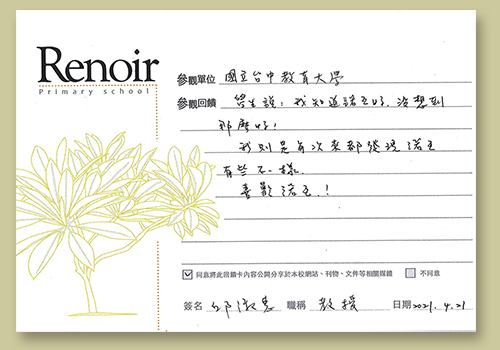 Renoir
Primary school
參觀單位 國立台中教育大學
參觀回饋 學生說：我知道諾瓦好，沒想到
那麼好！
我則是每次來都發現諾瓦
有些不一樣。
喜歡諾瓦！
同意將此回饋卡內容公開分享於本校網站、刊物、文件等相關媒體 不同意
簽名 邱淑惠 職稱 教授 日期 2021. 4. 21